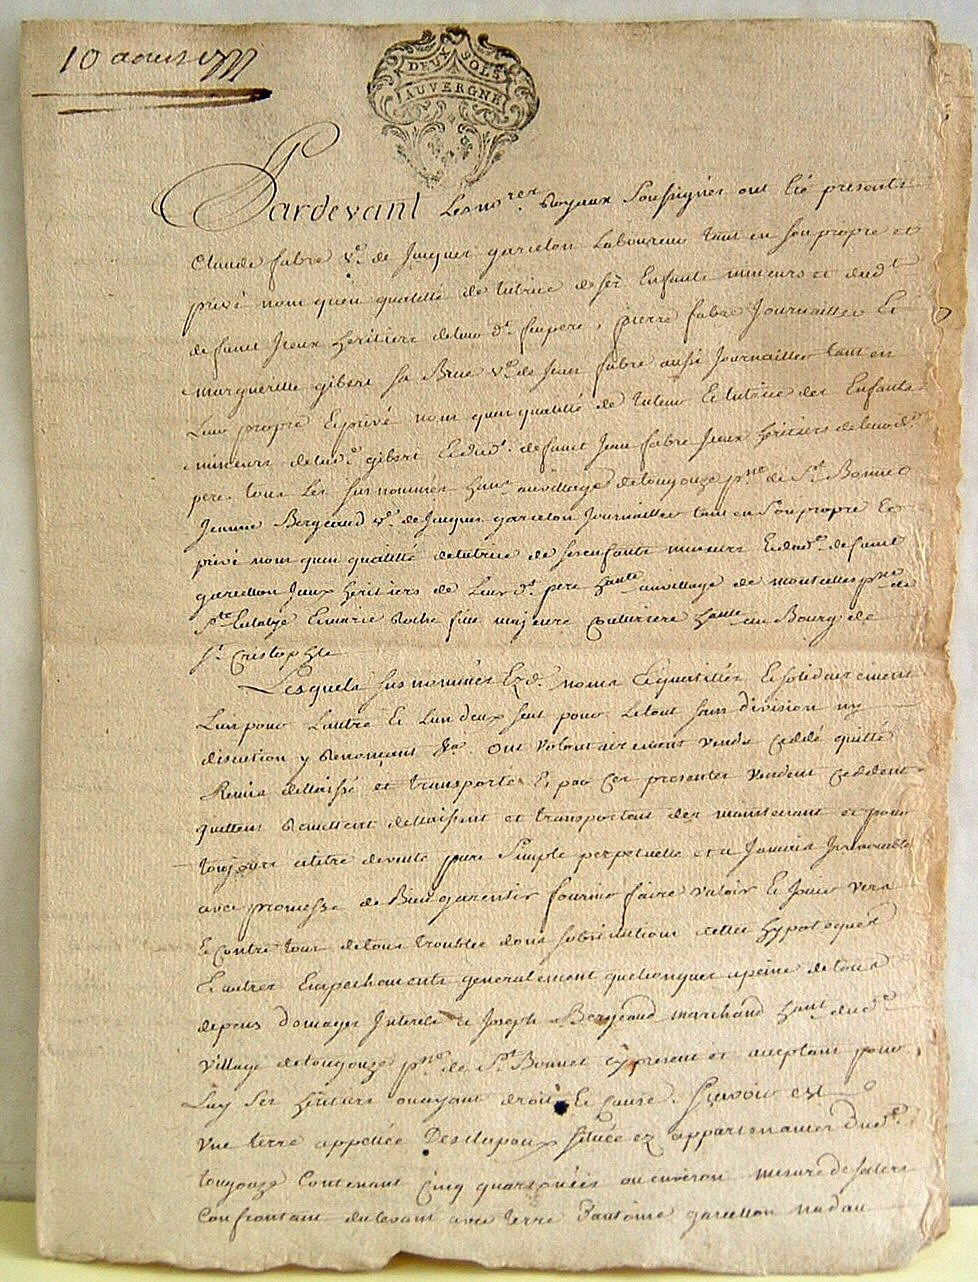 10 aoust 1777
DEUX SOLS
AUVERGNE
Pardevant Les no.res Royaux Soussignés ont été presents
Claude fabre v.e de Jacques garcelon Laboureur tant en son propre et
privé nom quen qualitté de tutrice de ses Enfants mineurs et dud.t
defunt Iceux heritiers de leur d.t feu pere, pierre fabre Journaillier Et
margueritte gibert sa Brue v.e de Jean fabre aussi Journaillier tant en
Leur propre Et privé nom quen qualitté de tuteur Et tutrice des Enfants
mineurs de lad.e gibert Et dud.t defunt Jean fabre Iceux heritiers de leur d.t
pere. tous Les susnommés hants au village de tougouze p.sse de S.t Bonnet
Jeanne Bergeaud v.e de Jacques garcelon Journaillier tant en Son propre Et
privé nom quen qualitté de tutrice de ses enfants mineurs Et dud.t defunt
garcellon Iceux heritiers de Leur d.t pere hante au village de montcelles p.sse de
S.te Eulalye Et marie Roche fille majeure Couturiere hante au Bourg de
S.t Cristophle
Lesquels susnommés Ezd. noms Et qualittés Et solidairement
Lun pour Lautre Et Lun deux seul pour Letout sans division ny
discution y Renonçant Ont volontairement vendu Ceddé quitté
Remis dellaissé et transporté Et par Ces presentes vendent Ceddent
quittent Remettent dellaissent et transportent des maintenant et pour
toujours atitre de vente pure Simple perpetuelle et a Jamais Irrevocable
avec promesse de Bien garentir fournir faire valoir Et Jouir vers
Et Contre tous de tous troubles dons substitutions dettes hypoteques
Et autres Empechements generalement quelconques apeine de tous
depens domages Interets a Joseph Bergeaud marchand hant dud.t
village de tougouze p.sse de S.t Bonnet Cy present et aceptant pour
Luy Ses heritiers ou ayant droit Et Cause. Sçavoir est
Une terre appellée Des située ez appartenances dud.t
tougouze Contenant Cinq quartonées ou environ mesure de salers
Confrontant du levant avec terre dantoine garcellon nadau